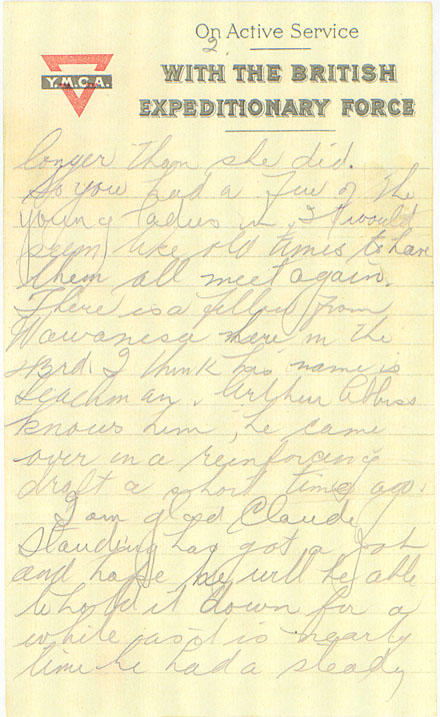 On Active Service
2.
Y.M.C.A.
WITH THE BRITISH
EXPEDITIONARY FORCE
longer than she did.
So you had a few of the
young ladies in, it would
seem like old times to have
them all meet again.
There is a fellow from
Wawanesa here in the
43rd. I think his name is
Leachman. Arthur Abbiss
knows him, he came
over in a reinforcing
draft a short time ago.
I am glad Claude
has got a job
and hope he will be able
to hold it down for a
while as it is nearly
time he had a steady